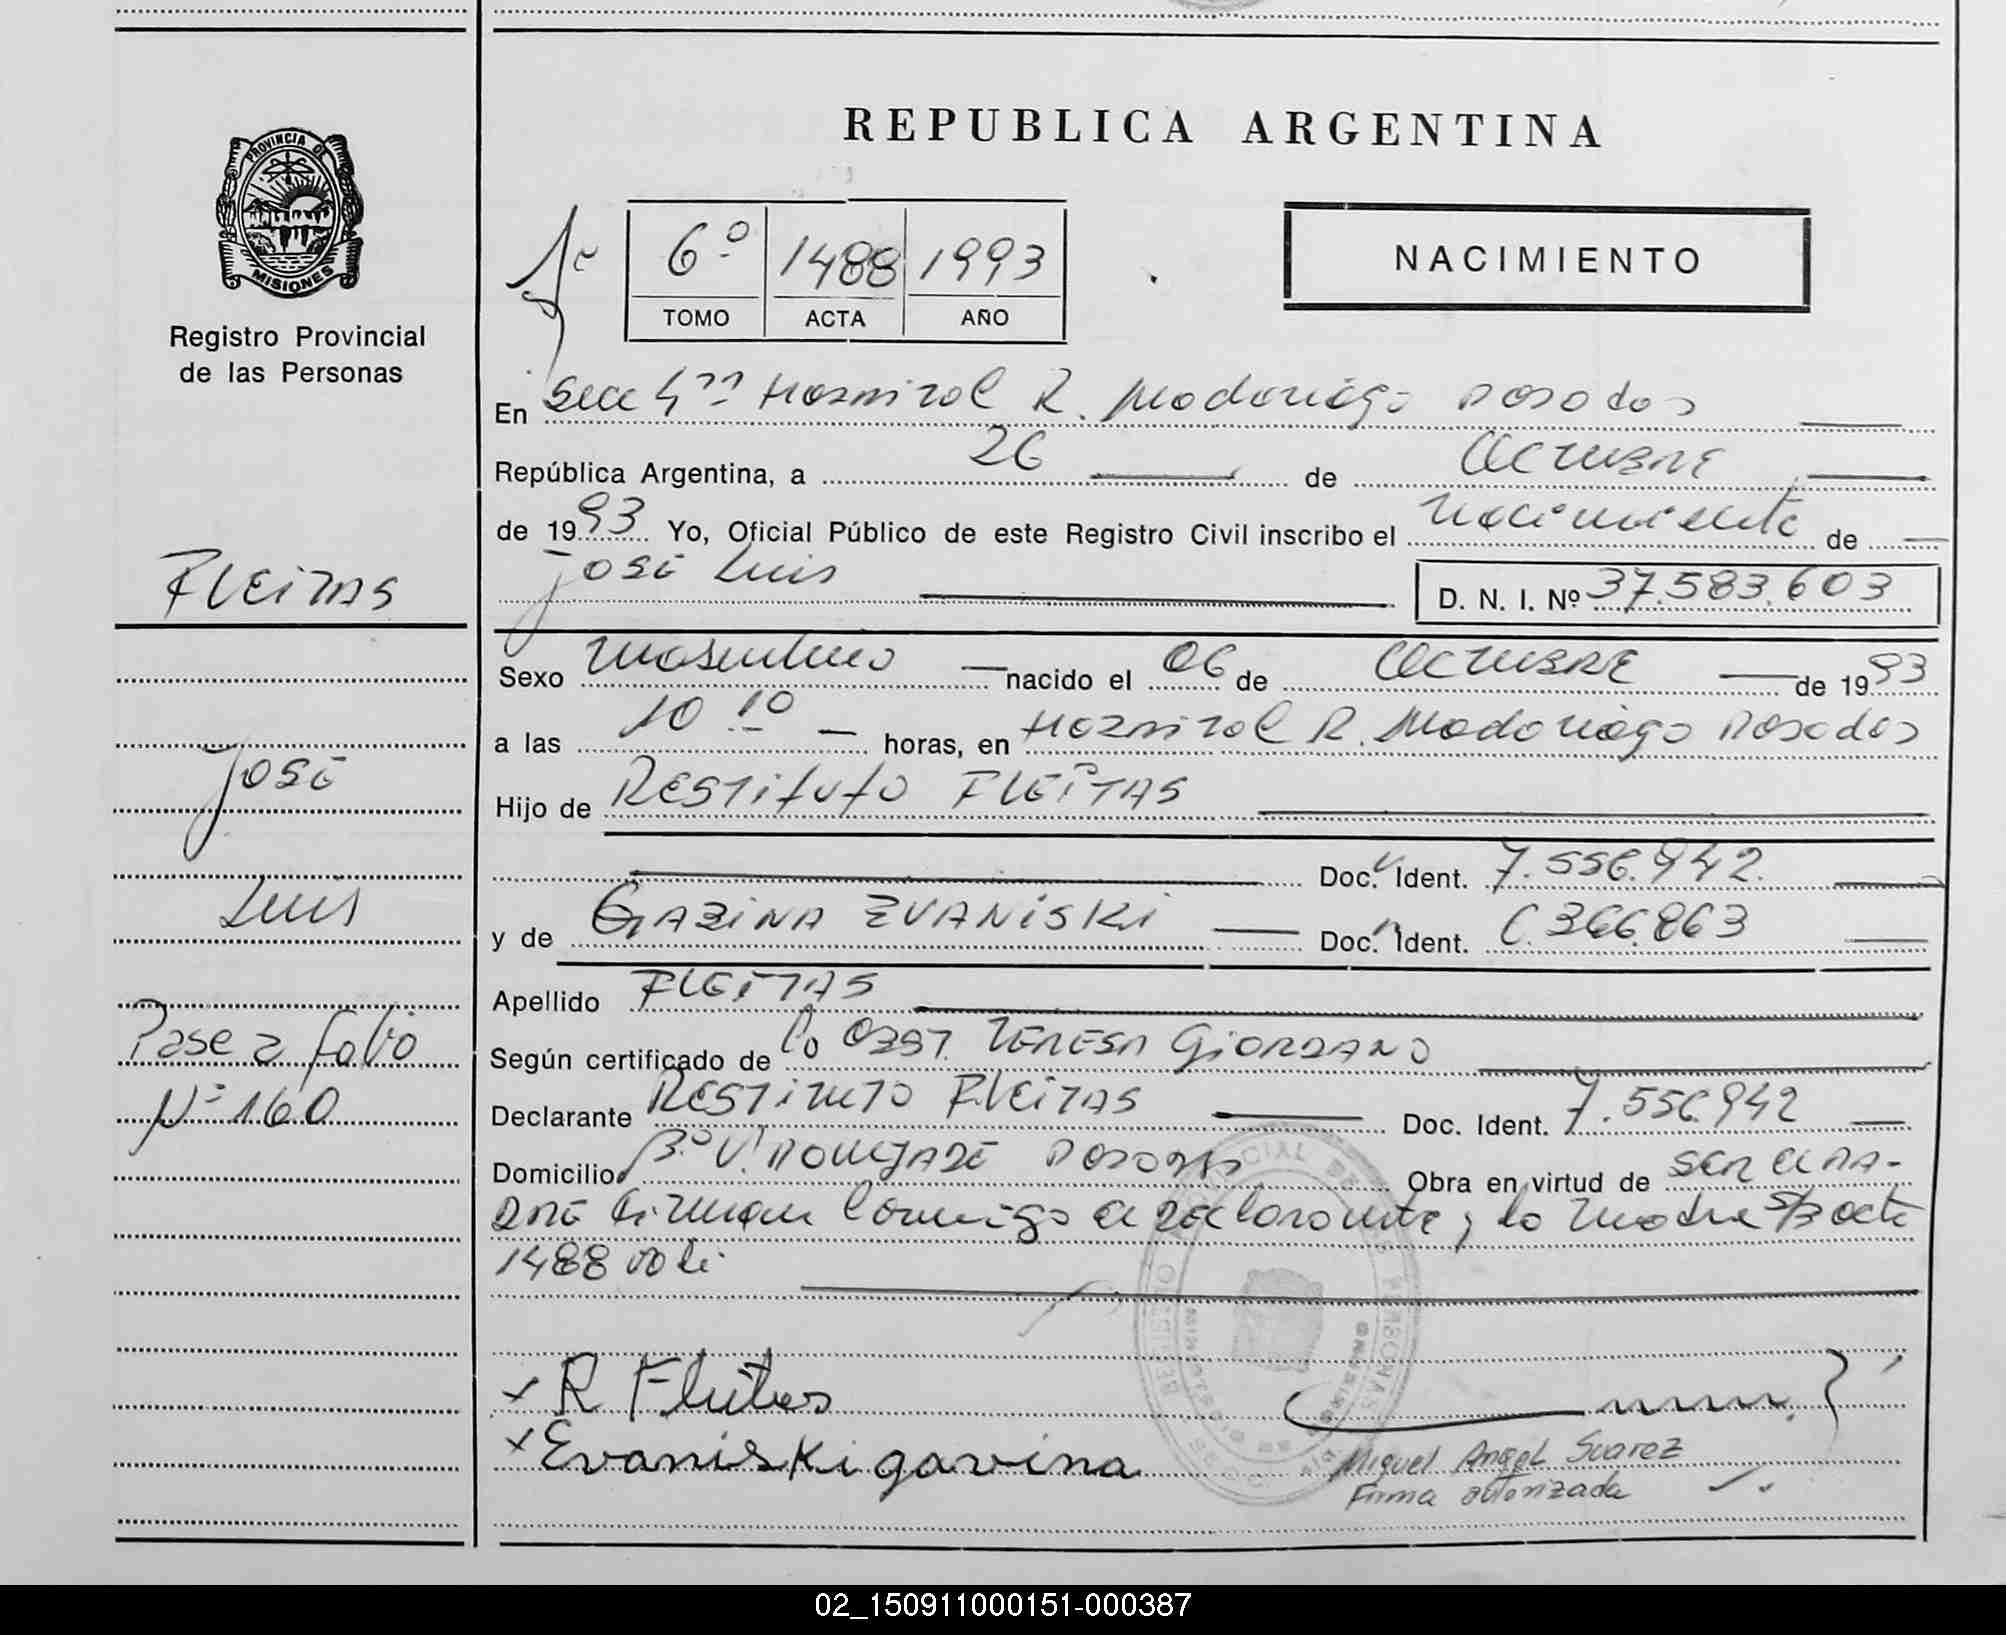 REPUBLICA ARGENTINA
PROVINCIA DE
MISIONES
Registro Provincial
de las Personas
6º 1488 1993
TOMO ACTA AÑO
NACIMIENTO
En Secc 4ª Hospital R. Madariaga Posadas
República Argentina, a 26 de Octubre
de 1993 Yo, Oficial Público de este Registro Civil inscribo el nacimiento de
José Luis D. N. I. Nº 37.583.603
FLEITAS
Sexo masculino nacido el 06 de Octubre de 1993
a las 10 10 horas, en Hospital R. Madariaga Posadas
José
Hijo de RESTITUTO FLEITAS
Doc. Ident. 7.556.942.
Luis
y de GABINA EVANISKI Doc. Ident. 6.366.863
Apellido FLEITAS
Pase a folio
Según certificado de la Obst. TERESA GIORDANO
Nº 160
Declarante RESTITUTO FLEITAS Doc. Ident. 7.556.942
Domicilio Bº Vº Posadas Obra en virtud de ser el pa-
dre firman conmigo el declarante y la madre s/b acta
1488 vale
REGISTRO PROVINCIAL DE LAS PERSONAS
MISIONES
x R Fleitas
x Evaniski gavina
Miguel Angel Suarez
Firma autorizada
02_150911000151-000387